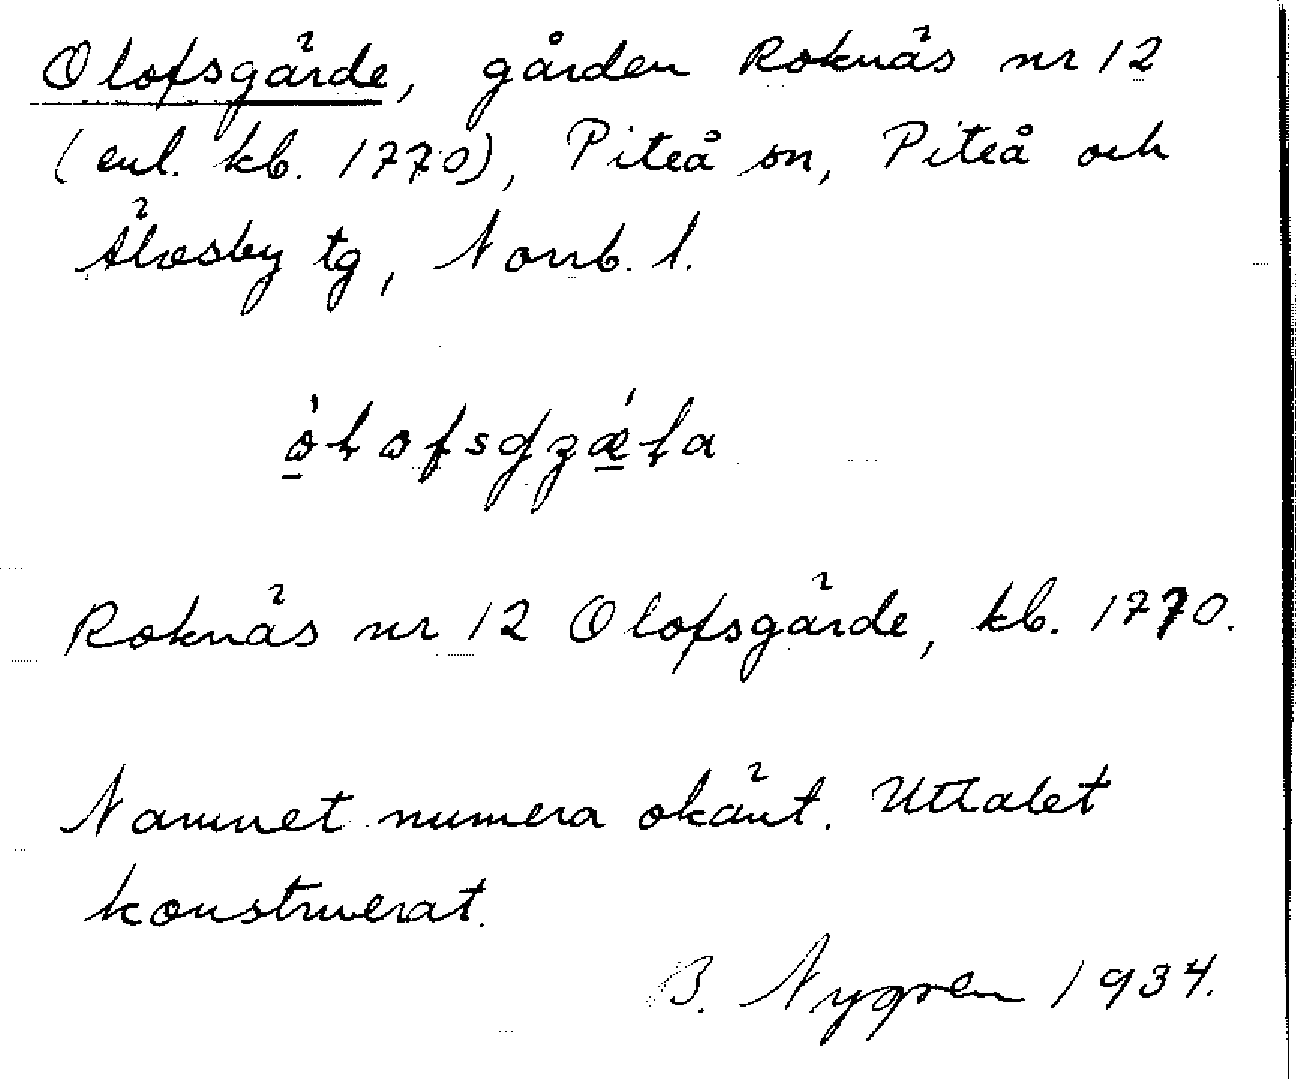 Olofsgärde, gården Roknäs nr 12
(enl. kb. 1770), Piteå sn, Piteå och
Älvsby tg, Norrb. l.
Roknäs nr 12 Olofsgärde, kb. 1770.
Namnet numera okänt. Uttalet
konstruerat.
B. Nygren 1934.